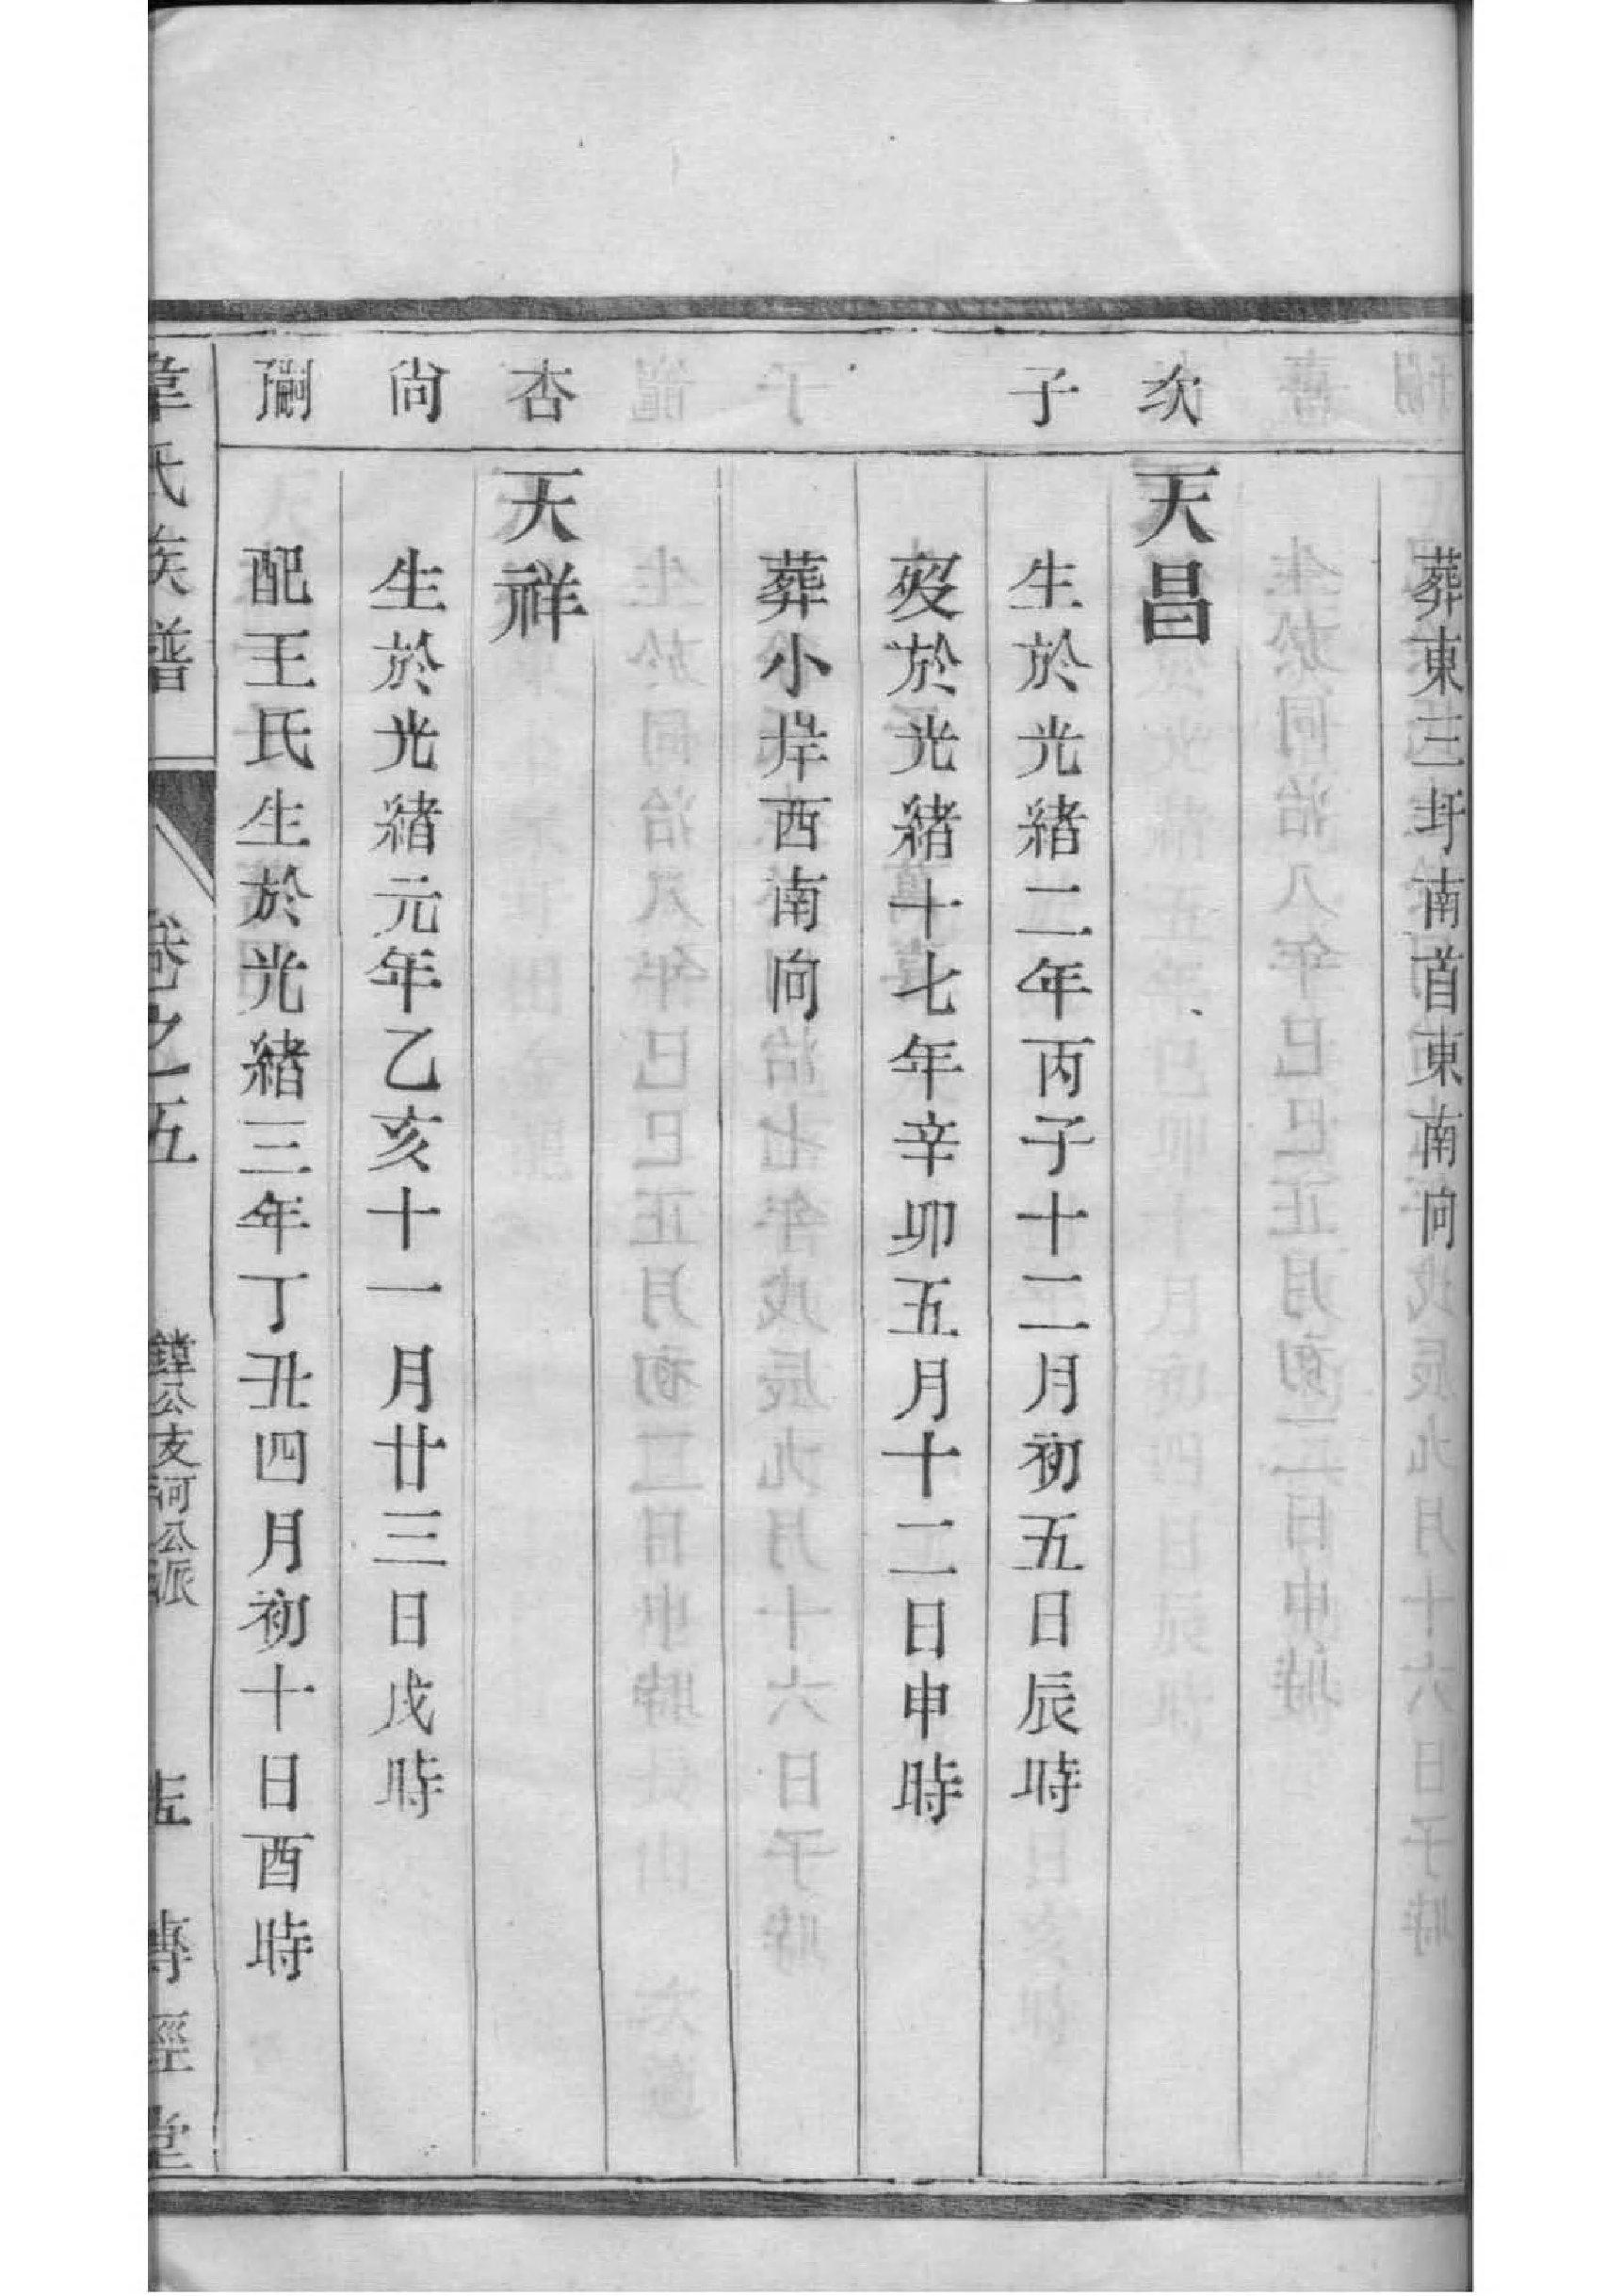 葬東三圩南首東南向
次
天昌
子
生於光緒二年丙子十二月初五日辰時
歿於光緒十七年辛卯五月十二日申時
葬小岸西南向
杏
天祥
尙
生於光緒元年乙亥十一月廿三日戌時
配王氏生於光緒三年丁丑四月初十日酉時
韋氏族譜
卷之五
公支河公派
傳經堂